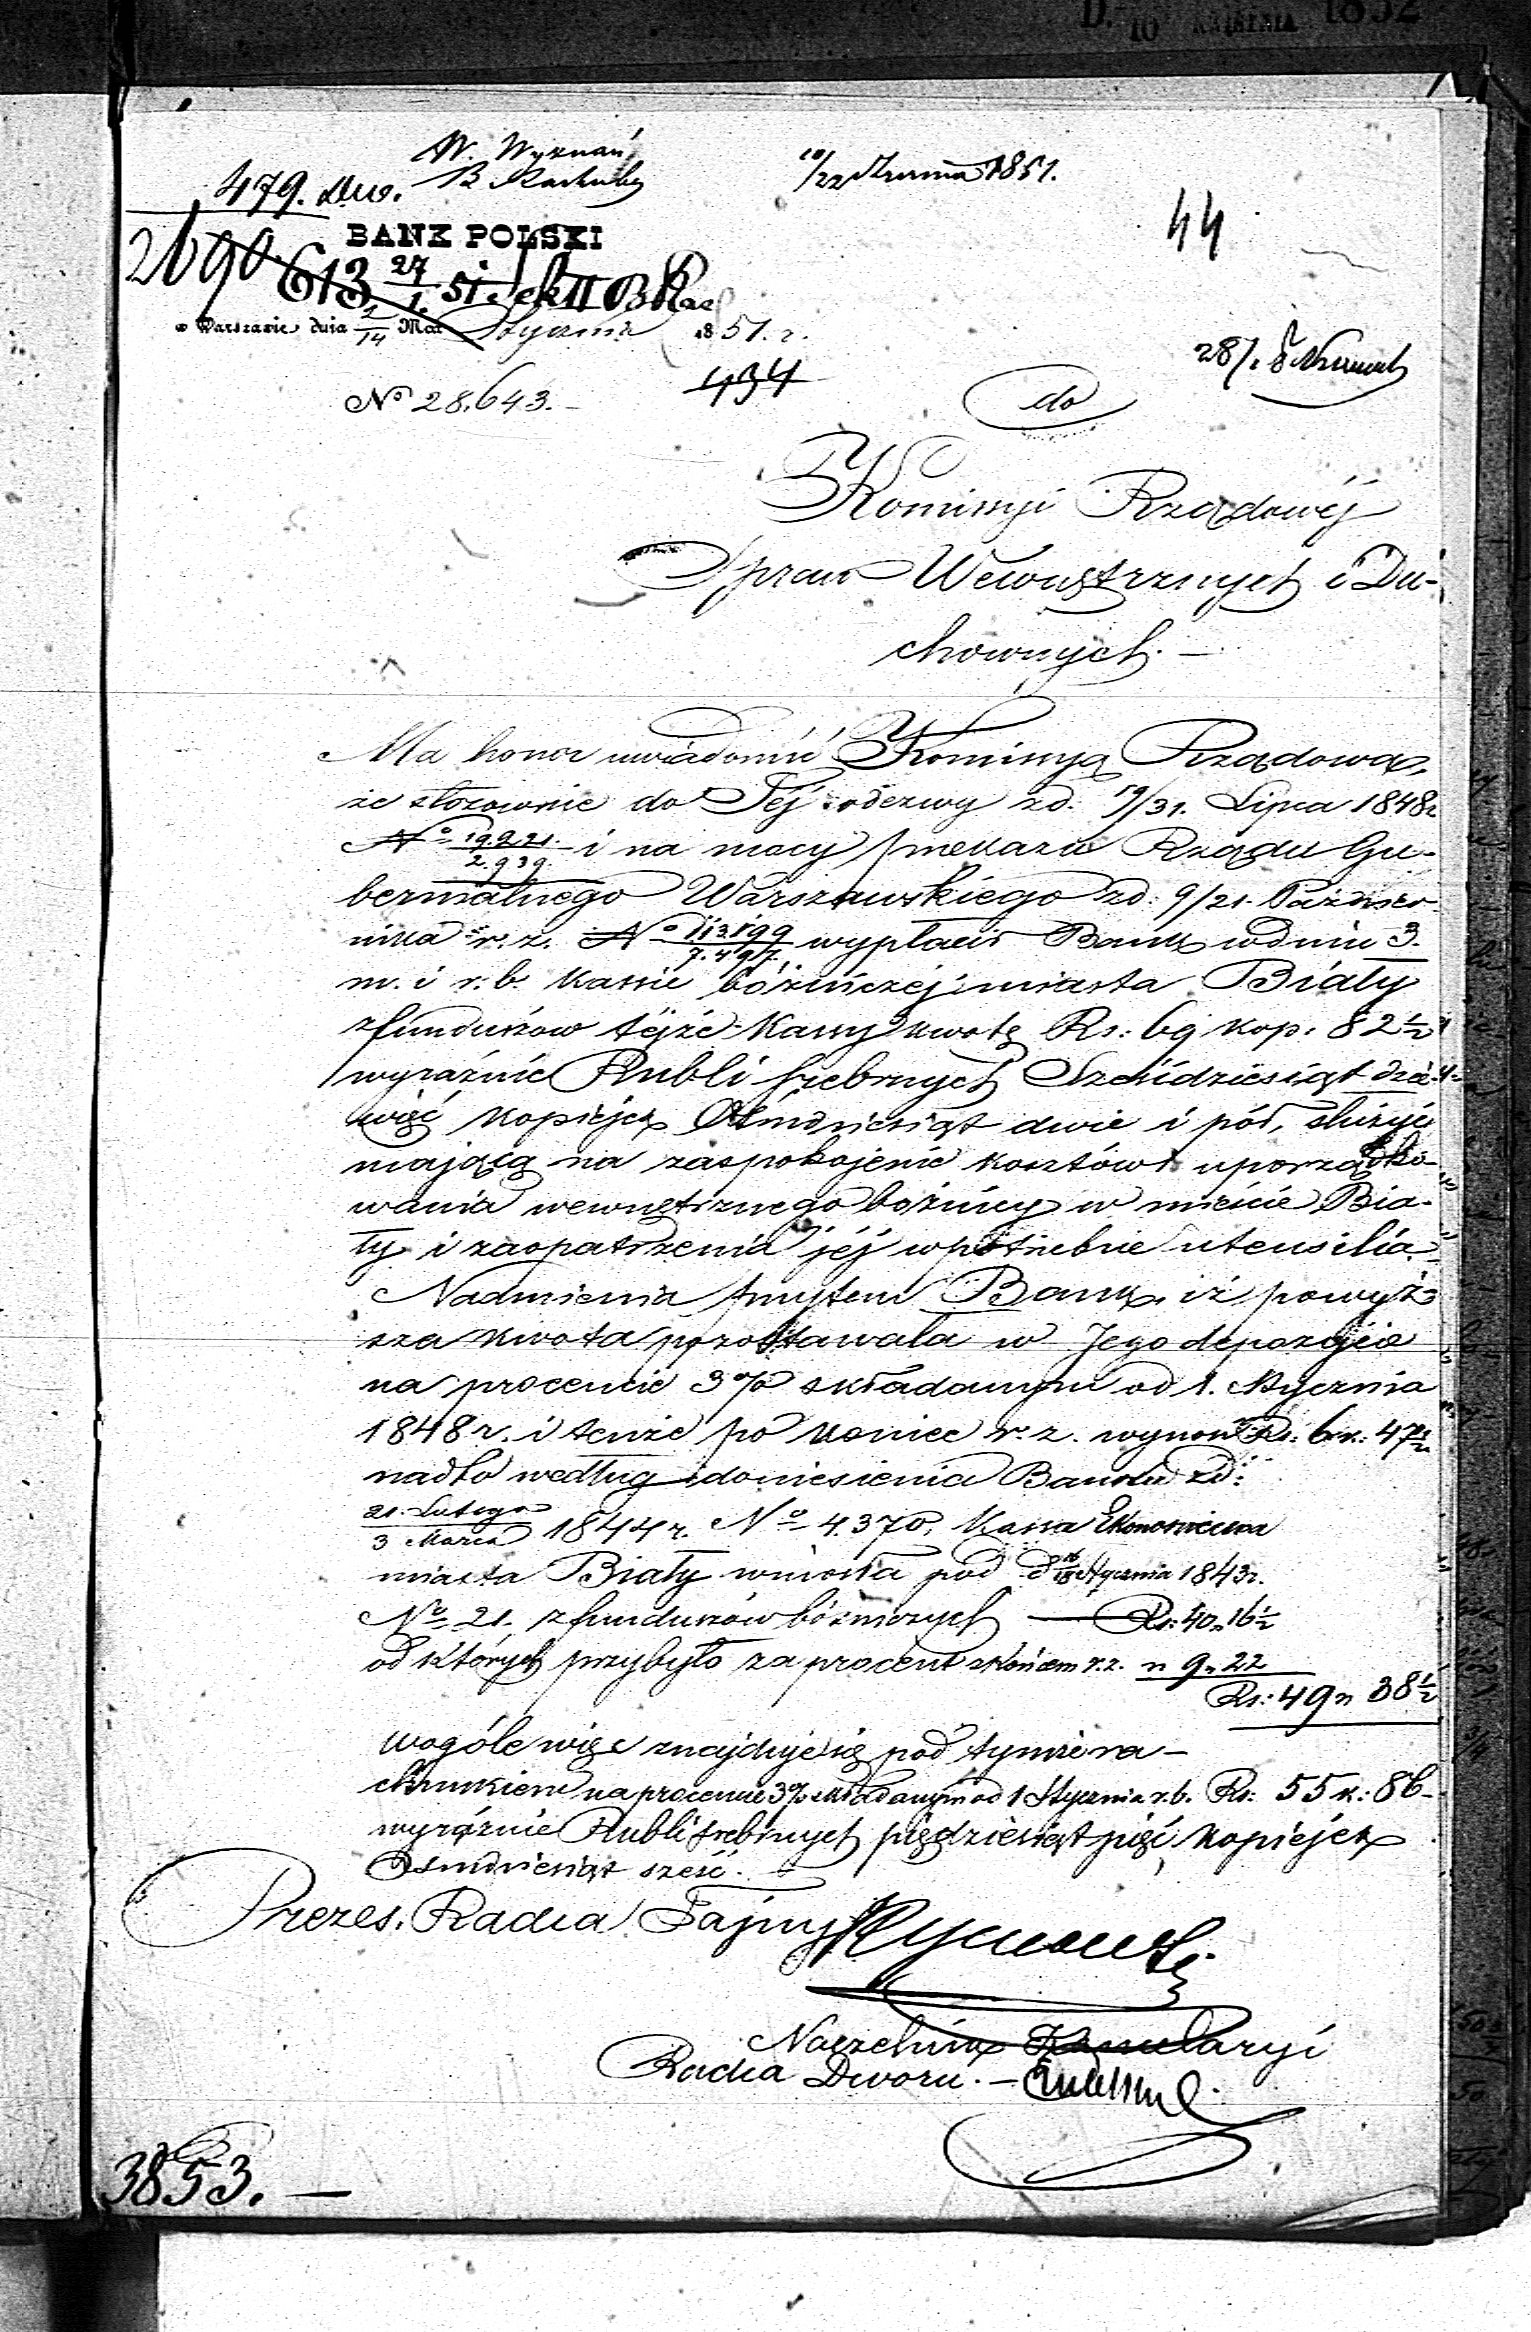 D. 10 1852
W. Wyznań
10/22 Stycznia 1851.
479. Dw.
44
BANK POLSKI
2690
613 27/1 51 Sek II
w Warszawie dnia 2/14 Stycznia 1851. r.
28/1
434
No 28,643.
do
Kommissyi Rządowéj
Spraw Wewnętrznych i Du-
chownych. —
Ma honor uwiadomić Kommissyą Rządową,
że stosownie do Jéj odezwy z d: 19/31. Lipca 1848r
No 19.921./2.939. i na mocy przekazu Rządu Gu-
bernialnego Warszawskiego z d: 9/21. Paździer-
nika r. z. No 113.199/7.497. wypłacił Bank w dniu 3.
m. i r. b. Kassie bóżniczéj miasta Biały
z funduszow téjże Kassy kwotę Rs: 69 kop: 82½
wyraźnie Rubli srebrnych Sześćdziesiąt dzie-
więć kopiejek Ośmdziesiąt dwie i pół, służyć
mającą na zaspokojenie kosztów uporządko-
wania wewnętrznego bożnicy w mieście Bia-
ły i zaopatrzenia jéj w potrzebne utensilia.
Nadmienia przytem Bank, iż powyż-
sza kwota pozostawała w Jego depozycie
na procencie 3% składanym od 1. Stycznia
1848 r. i tenże po koniec r. z. wynosi Rs: 6 k: 47½
nadto według doniesienia Banku z d:
21. Lutego/3 Marca 1844 r. No 4.370, Kassa Ekonomiczna
miasta Biały wniosła pod d 6/18 Stycznia 1843r.
No 21. z funduszów bóżniczych — Rs: 40 „ 16½
od których przybyło za procent z końcem r. z. „ 9 „ 22
Rs: 49 „ 38½
wogóle więc znajduje się pod tymże ra-
chunkiem na procencie 3% składanym od 1 Stycznia r. b. Rs: 55 k: 86 –
wyraźnie Rubli srebrnych pięćdziesiąt pięć, kopiejek
Ośmdziesiąt sześć. —
Prezes, Radca Tajny
Naczelnik Kancelaryi
Radca Dworu. —
3853. —